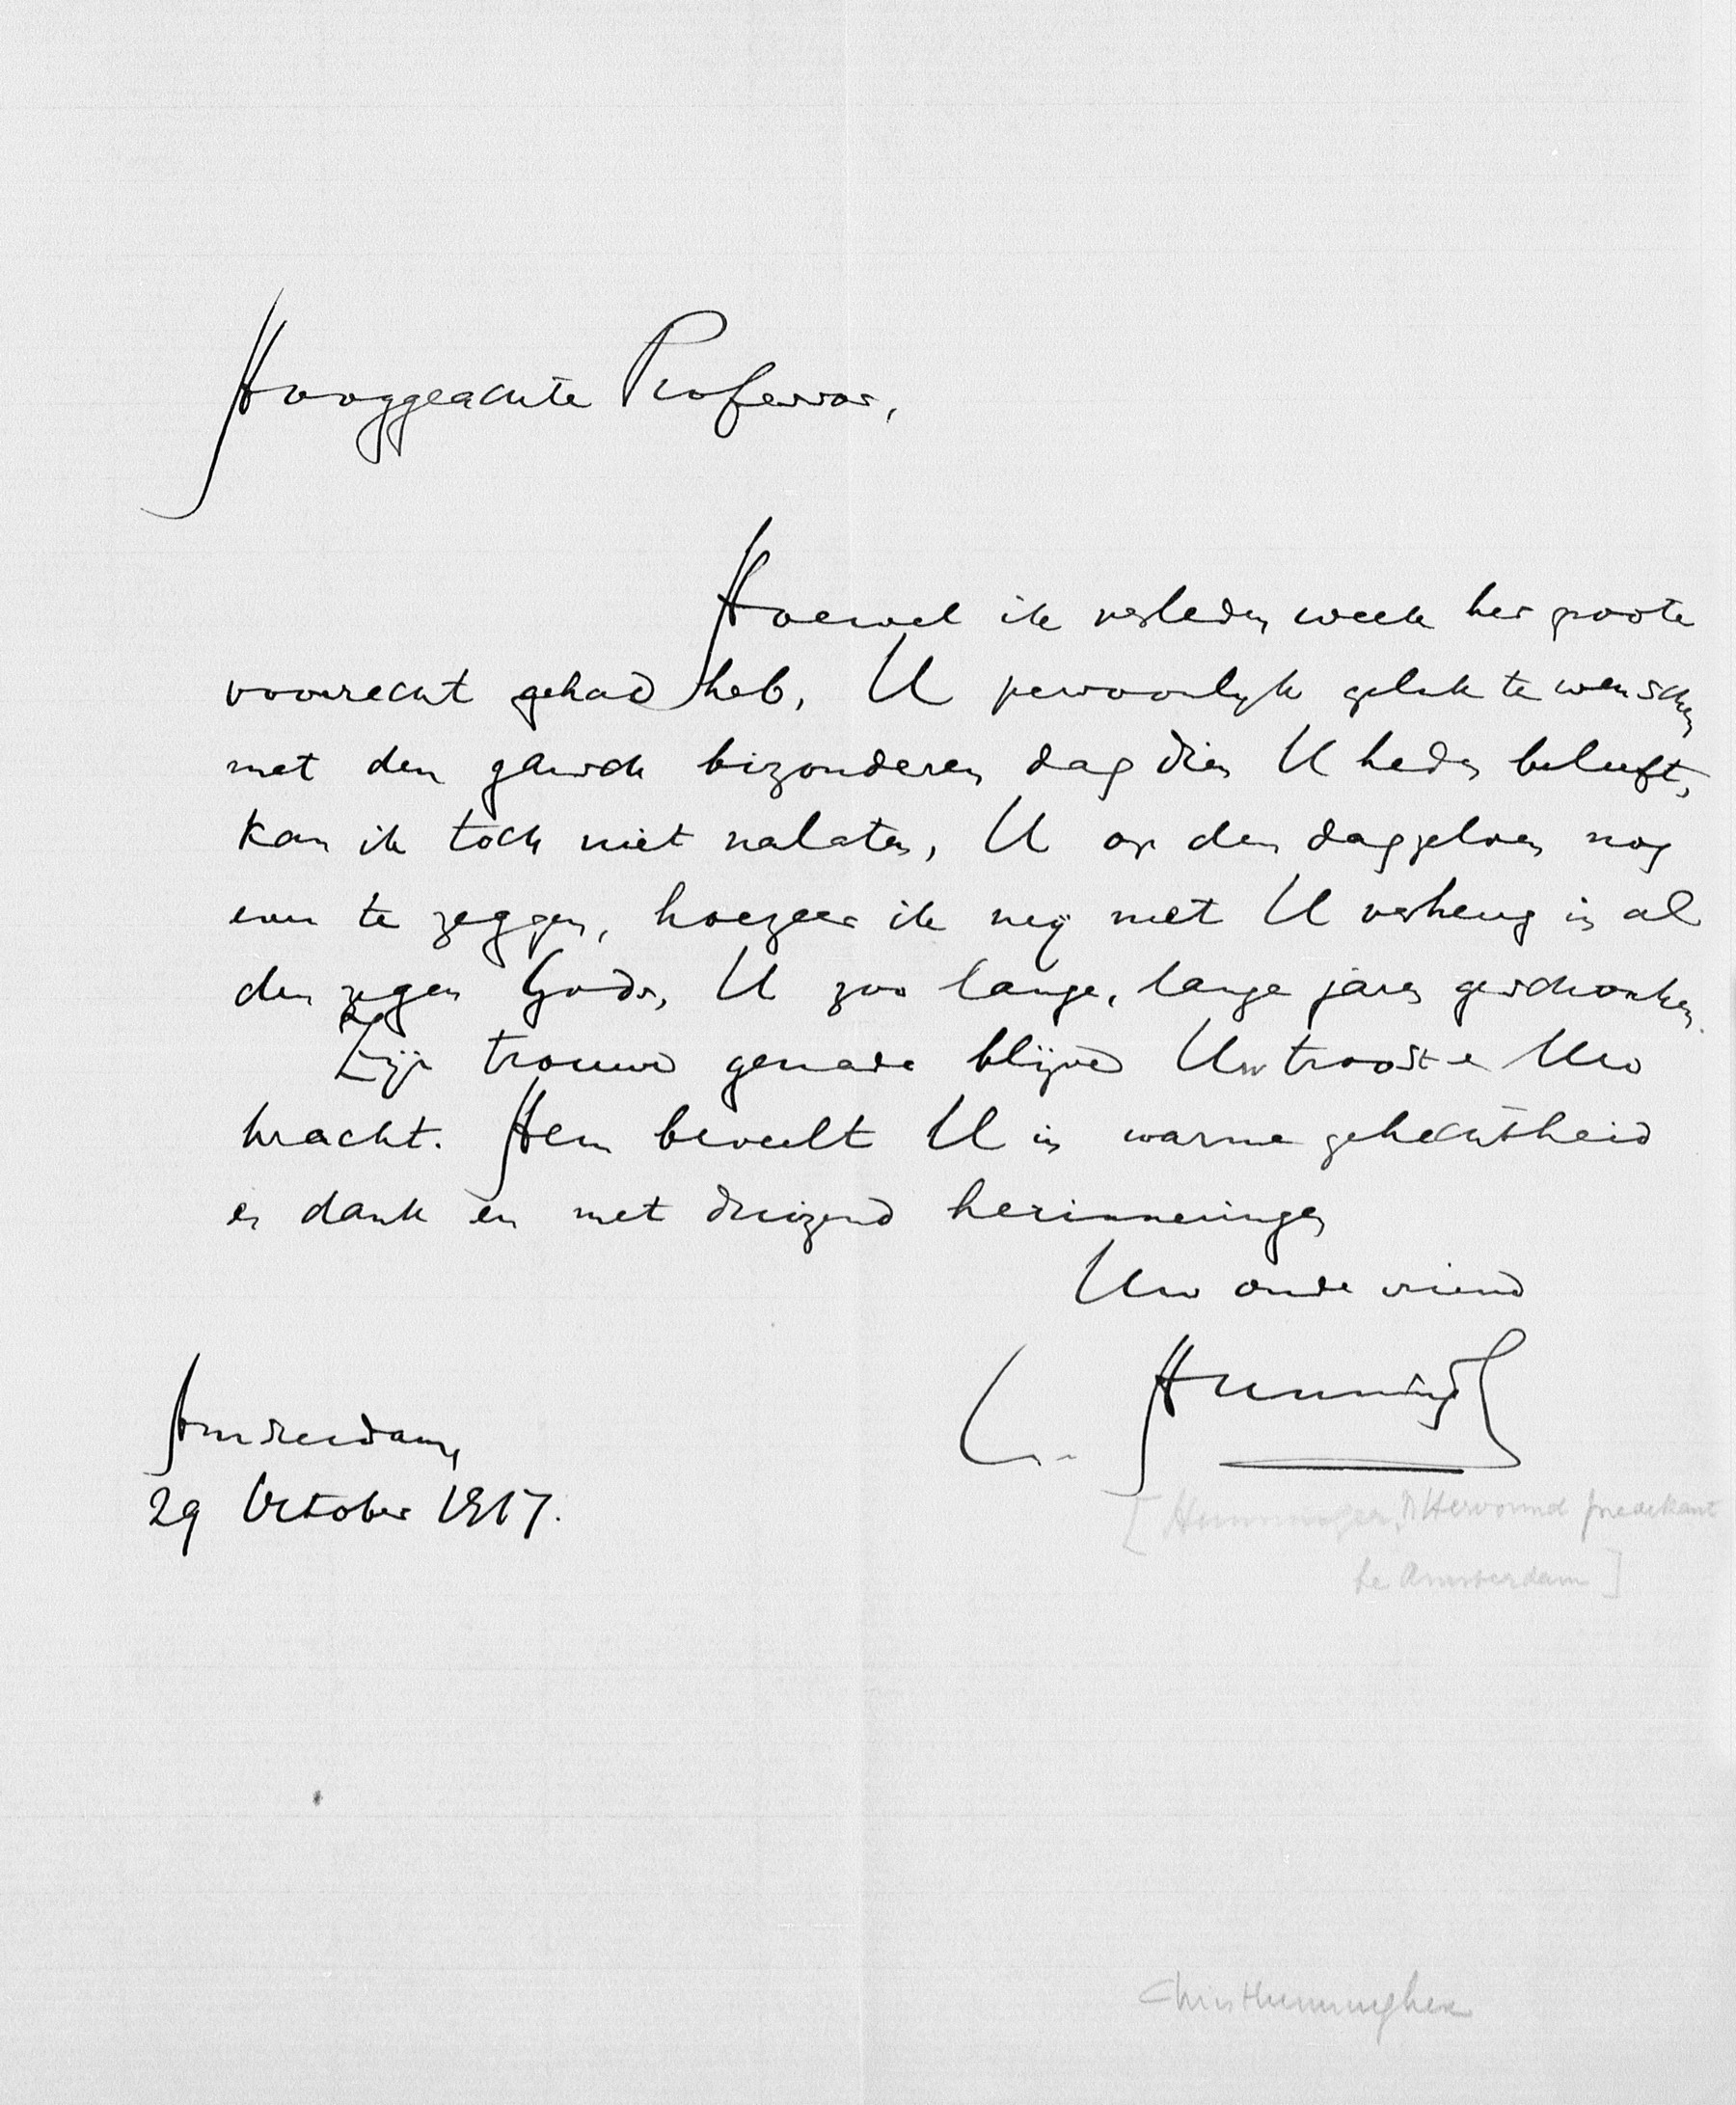 Hooggeachte Professor,
Hoewel ik verleden week het groote
voorrecht gehad heb, U persoonlijk geluk te wenschen
met den gansch bizonderen dag dien U heden beleeft,
kan ik toch niet nalaten, U op den dag zelven nog
even te zeggen, hoezeer ik mij met U verheug in al
den zegen Gods, U zoo lange, lange jaren geschonken.
Zijn trouwe genade blijve Uw troost en Uw
kracht. Hem beveelt U in warme gehechtheid
en dank en met duizend herinneringen
Uw oude vriend
Amsterdam,
29 October 1917.
Hervormd predikant
te Amsterdam]